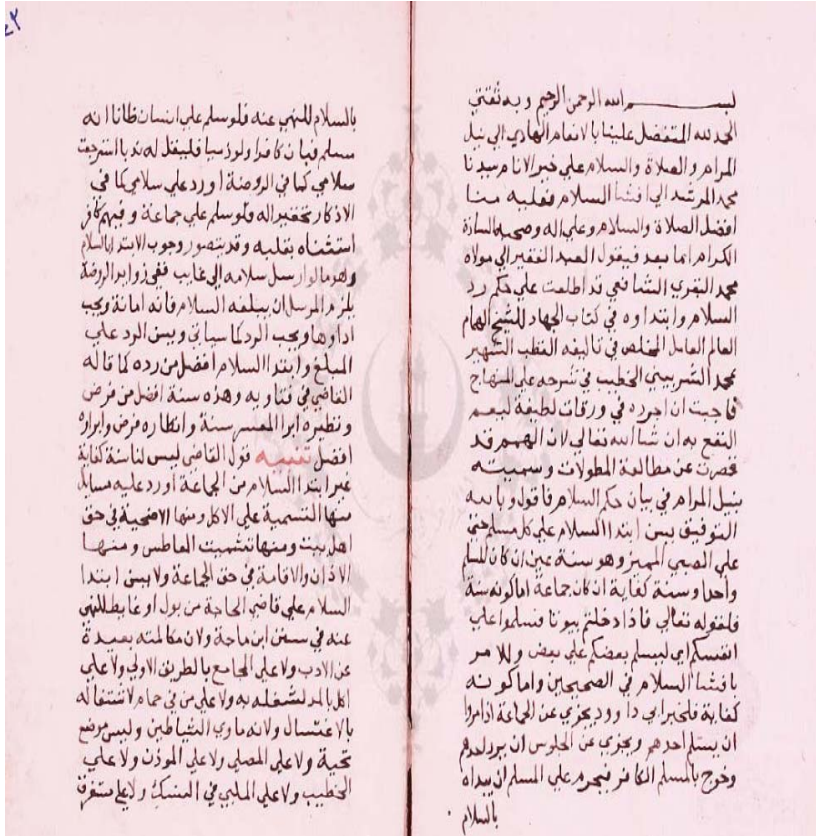 بسم الله الرحمن الرحيم وبه ثقتي
الحمد لله المتفضل علينا بالانعام الهادي الي نيل
المرام والصلاة والسلام علي خير الانام سيدنا
محمد المرشد الي افشا السلام فعليه منا
افضل الصلاة والسلام وعلي اله وصحبه السادة
الكرام اما بعد فيقول العبد الفقير الي مولاه
محمد البقري الشافعي قد اطلعت علي حكم رد
السلام وابتداوه في كتاب الجهاد للشيخ الهمام
العالم العامل المخلص في تاليفه القطب الشهير
محمد الشربيني الخطيب في شرحه علي المنهاج
فاجبت ان اجرده في ورقات لطيفة ليعم
النفع به ان شا الله تعالي لان الهمم قد
قصرت عن مطالعة المطولات وسميته
بنيل المرام في بيان حكم السلام فاقول وبالله
التوفيق يسن ابتدا السلام علي كل مسلم حتي
علي الصبي المميز وهو سنة عين ان كان المسلم
واحدا وسنة كفاية ان كان جماعة اما كونه سنة
فلقوله تعالي فاذا دخلتم بيوتا فسلموا علي
انفسكم اي ليسلم بعضكم علي بعض وللامر
بافشا السلام في الصحيحين واما كونه
كفاية فلخبر ابي داوود يجزي عن الجماعة اذا مروا
ان يسلم احدهم ويجزي عن الجلوس ان يرد احدهم
وخرج بالمسلم الكافر فيحرم علي المسلم ان يبداه
بالسلام
بالسلام للنهي عنه فلو سلم علي انسان ظانا انه
مسلم فبان كافرا ولو ذميا فليقل له ندبا استرجعت
سلامي كما في الروضة او رد علي سلامي كما في
الاذكار تحقيرا له ولو سلم علي جماعة وفيهم كافر
استثناه بقلبه وقد يتصور وجوب الابتدا بالسلام
وهو ما لو ارسل سلامه الي غايب ففي زوايد الروضة
يلزم المرسل ان يبلغه السلام فانه امانة ويجب
اداوها ويجب الرد كما سياتي ويسن الرد علي
المبلغ وابتدا السلام افضل من رده كما قاله
القاضي في فتاويه وهذه سنة افضل من فرض
ونظيره ابرا المعسر سنة وانظاره فرض وابراره
افضل تنبيه قول القاضي ليس لنا سنة كفاية
غير ابتدا السلام من الجماعة اورد عليه مسايل
منها التسمية علي الاكل ومنها الاضحية في حق
اهل بيت ومنها تشميت العاطس ومنها
الاذان والاقامة في حق الجماعة ولا يسن ابتدا
السلام علي قاضي الحاجة من بول او غايط للنهي
عنه في سنن ابن ماجة ولان مكالمته بعيدة
عن الادب ولا علي المجامع بالطريق الاولي ولا علي
اكل بالمد لشغله به ولا علي من في حمام لاشتغاله
بالاغتسال ولانه ماوي الشياطين وليس موضع
تحية ولا علي المصلي ولا علي الموذن ولا علي
الخطيب ولا علي الملبي في النسك ولا علي مستغرق